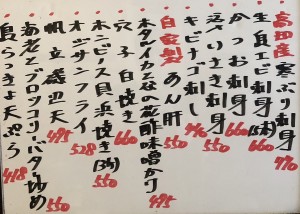 高田産寒ぶり刺身 770
生良エビ刺身(3本) 660
かつお刺身 660
活〆いさき刺身 770
キビナゴ刺身 550
自家製あん肝 550
ホタルイカと菜の花酢味噌かけ 495
穴子白焼き 660
ホンビノス貝浜焼き(3ケ) 550
オジサンフライ 528
帆立磯辺天 495
海老とブロッコリーバター炒め 550
島らっきょ天ぷら 418